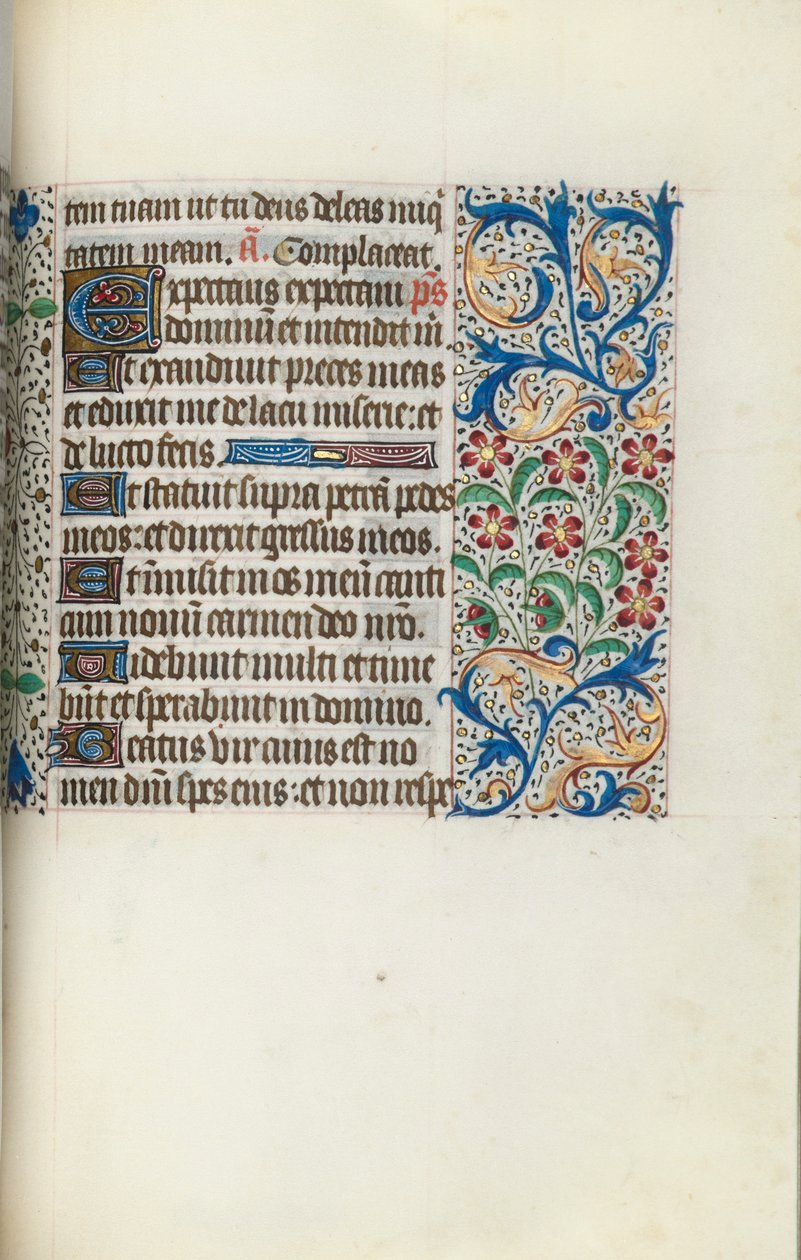 tem tuam ut tu deus deleas iniq̇
tatem meam. Ã. Complaceat.
Expectans expectaui p̄s
dominū et intendit m̄.
Et exaudiuit preces meas
et eduxit me de lacu miserie: et
de lucto fecis
Et statuit supra petrā pedes
meos: et direxit gressus meos.
Et īmisit in os meū canti
cum nouū carmen deo nr̄o.
Uidebunt multi et time
būt et sperabunt in domino.
Beatus vir cuius est no
men dn̄i spes eius: et non respe